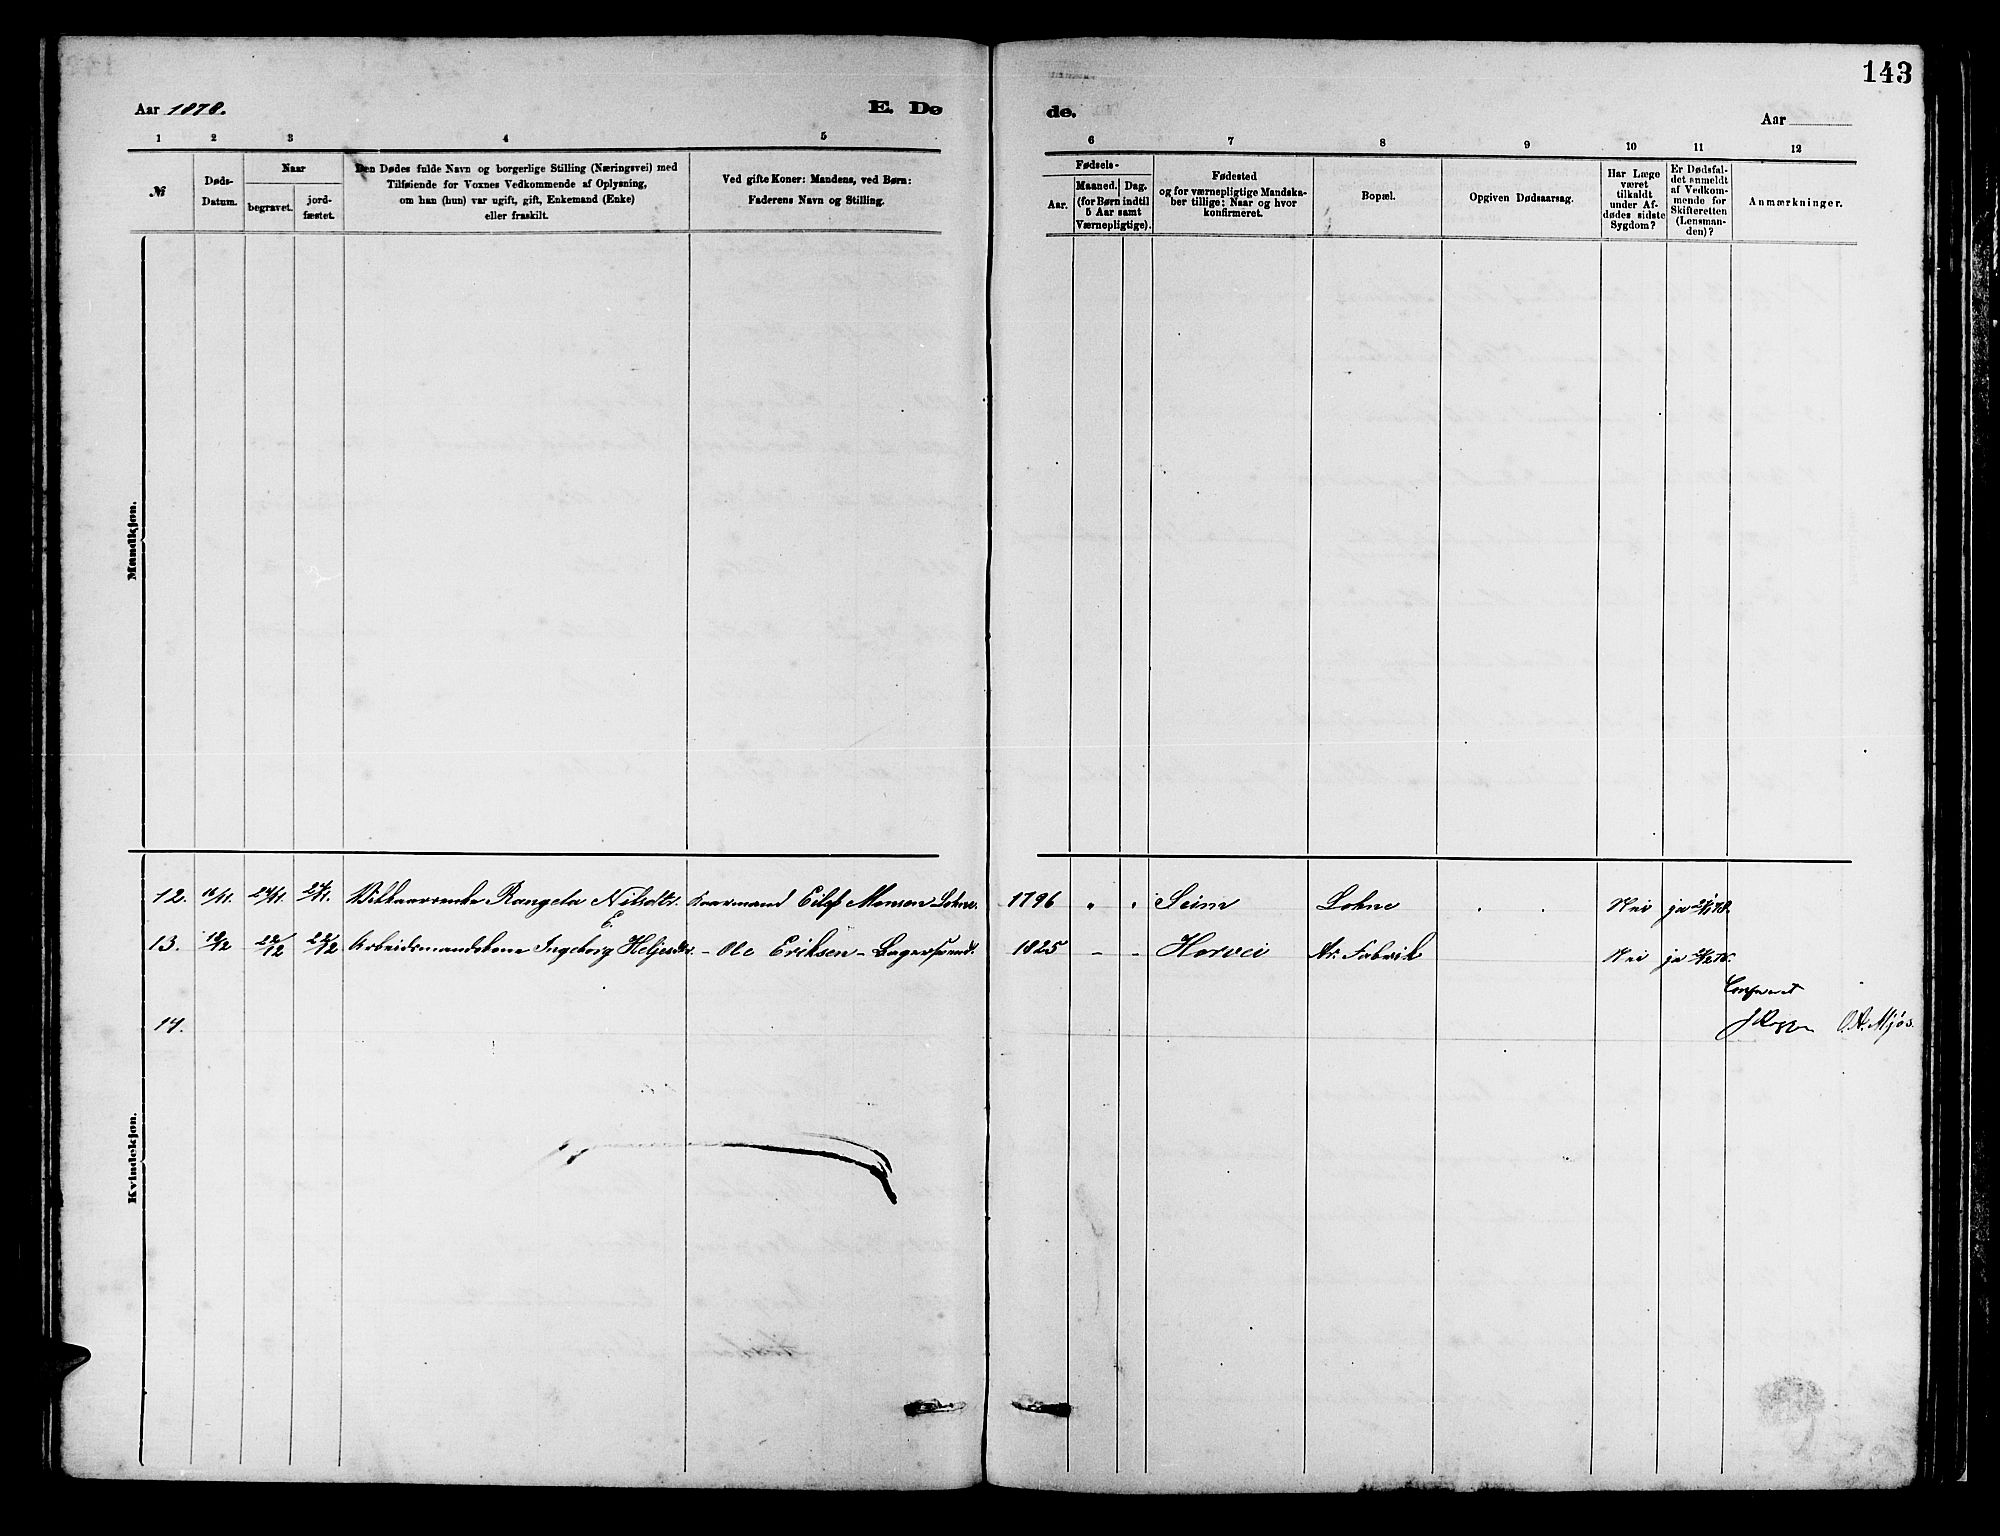 143
Aar 1878. E. Dø de. Aar
1 2 3 4 5 6 7 8 9 10 11 12
№
Døds-Datum.
Naar
begravet. jord-fæstet.
Den Dødes fulde Navn og borgerlige Stilling (Næringsvei) med
Tilføiende for Voxnes Vedkommende af Oplysning,
om han (hun) var ugift, gift, Enkemand (Enke)
eller fraskilt.
Ved gifte Koner: Mandens, ved Børn:
Faderens Navn og Stilling.
Fødsels-
Aar. Maaned. Dag.
(for Børn indtil
5 Aar samt
Værnepligtige).
Fødested
og for værnepligtige Mandska-
ber tillige: Naar og hvor
konfirmeret.
Bopæl.
Opgiven Dødsaarsag.
Har Læge
været
tilkaldt
under Af-
dødes sidste
Sygdom?
Er Dødsfal-
det anmeldt
af Vedkom-
mende for
Skifteretten
(Lensman-
den)?
Anmærkninger.
Mandkjøn.
12. 16/11. 24/11. 24/11. Rangela Nilsdtr. Kaarmand Eilef Monsen Lohne. 1796 " " Seim Lohne Nei ja
E.
13. 22/12 22/12 Arbeidsmandskone Ingeborg Heljesdtr. - Ole Eriksen - 1825 - - Horvei Ar. Fabrik Nei ja
14. O.A. Mjøs.
Kvindekjøn.